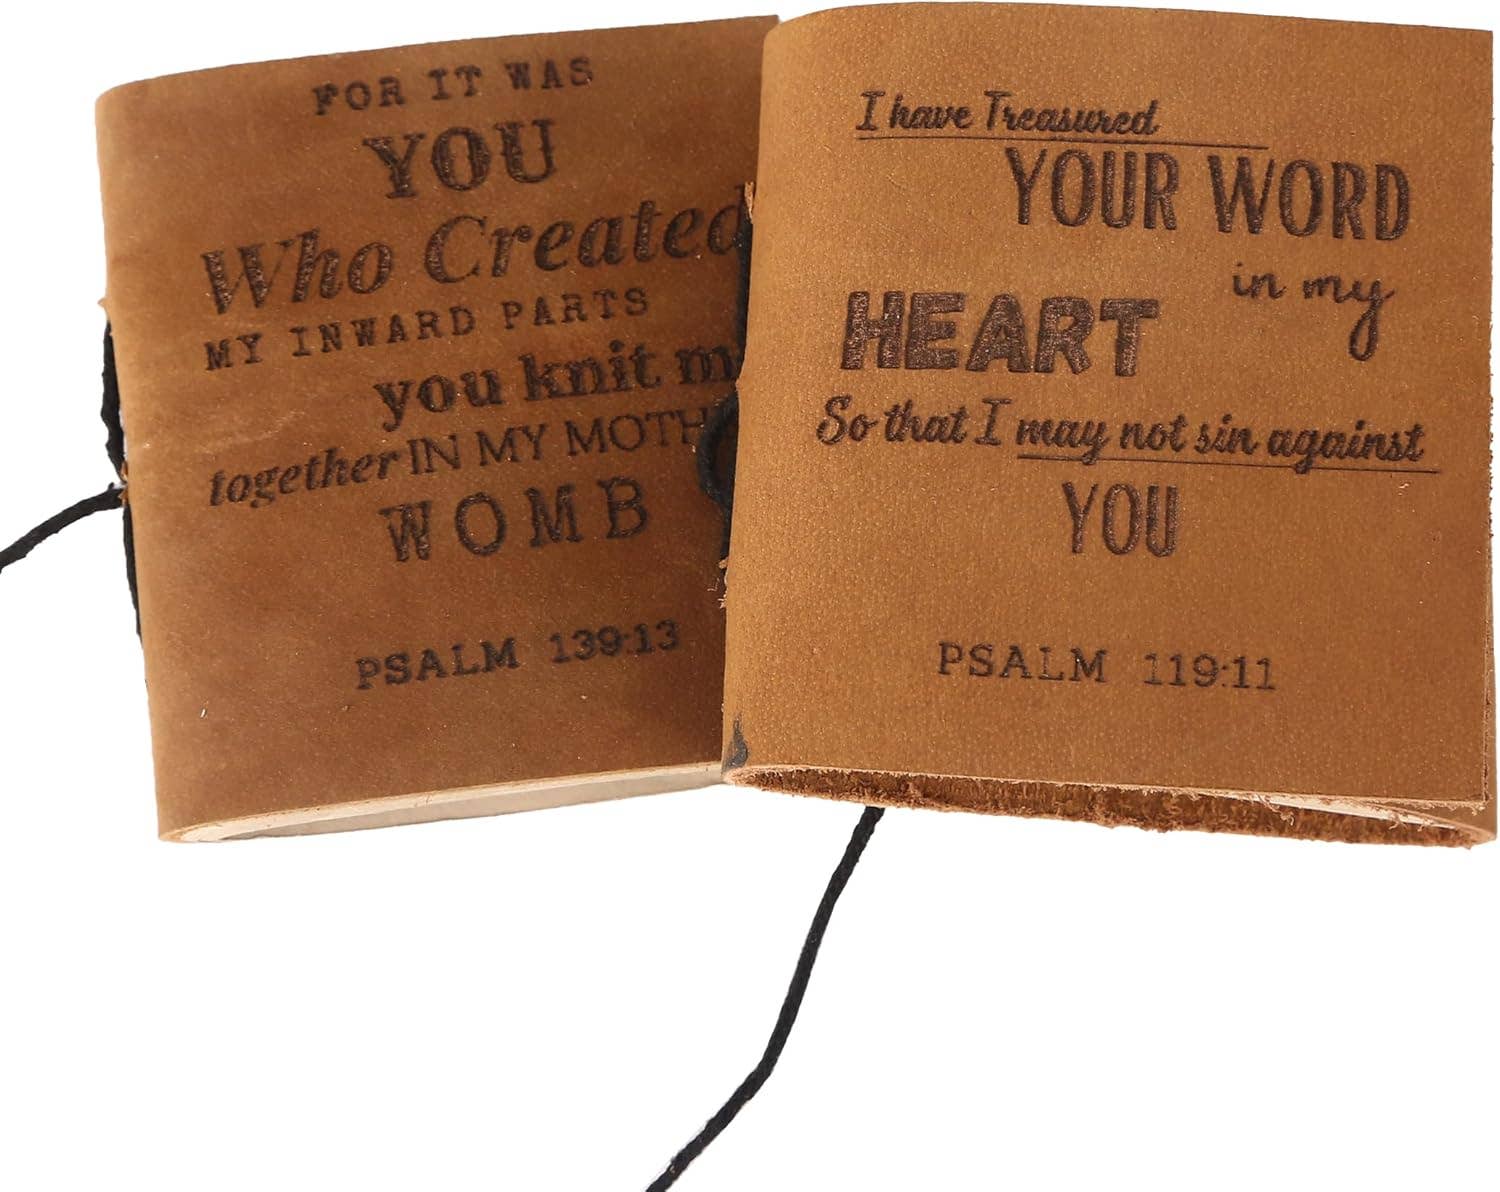 FOR IT WAS
YOU
Who Created
MY INWARD PARTS
you knit
together IN MY
WOMB
PSALM 139:13
I have Treasured
YOUR WORD
in my
HEART
So that I may not sin against
YOU
PSALM 119:11